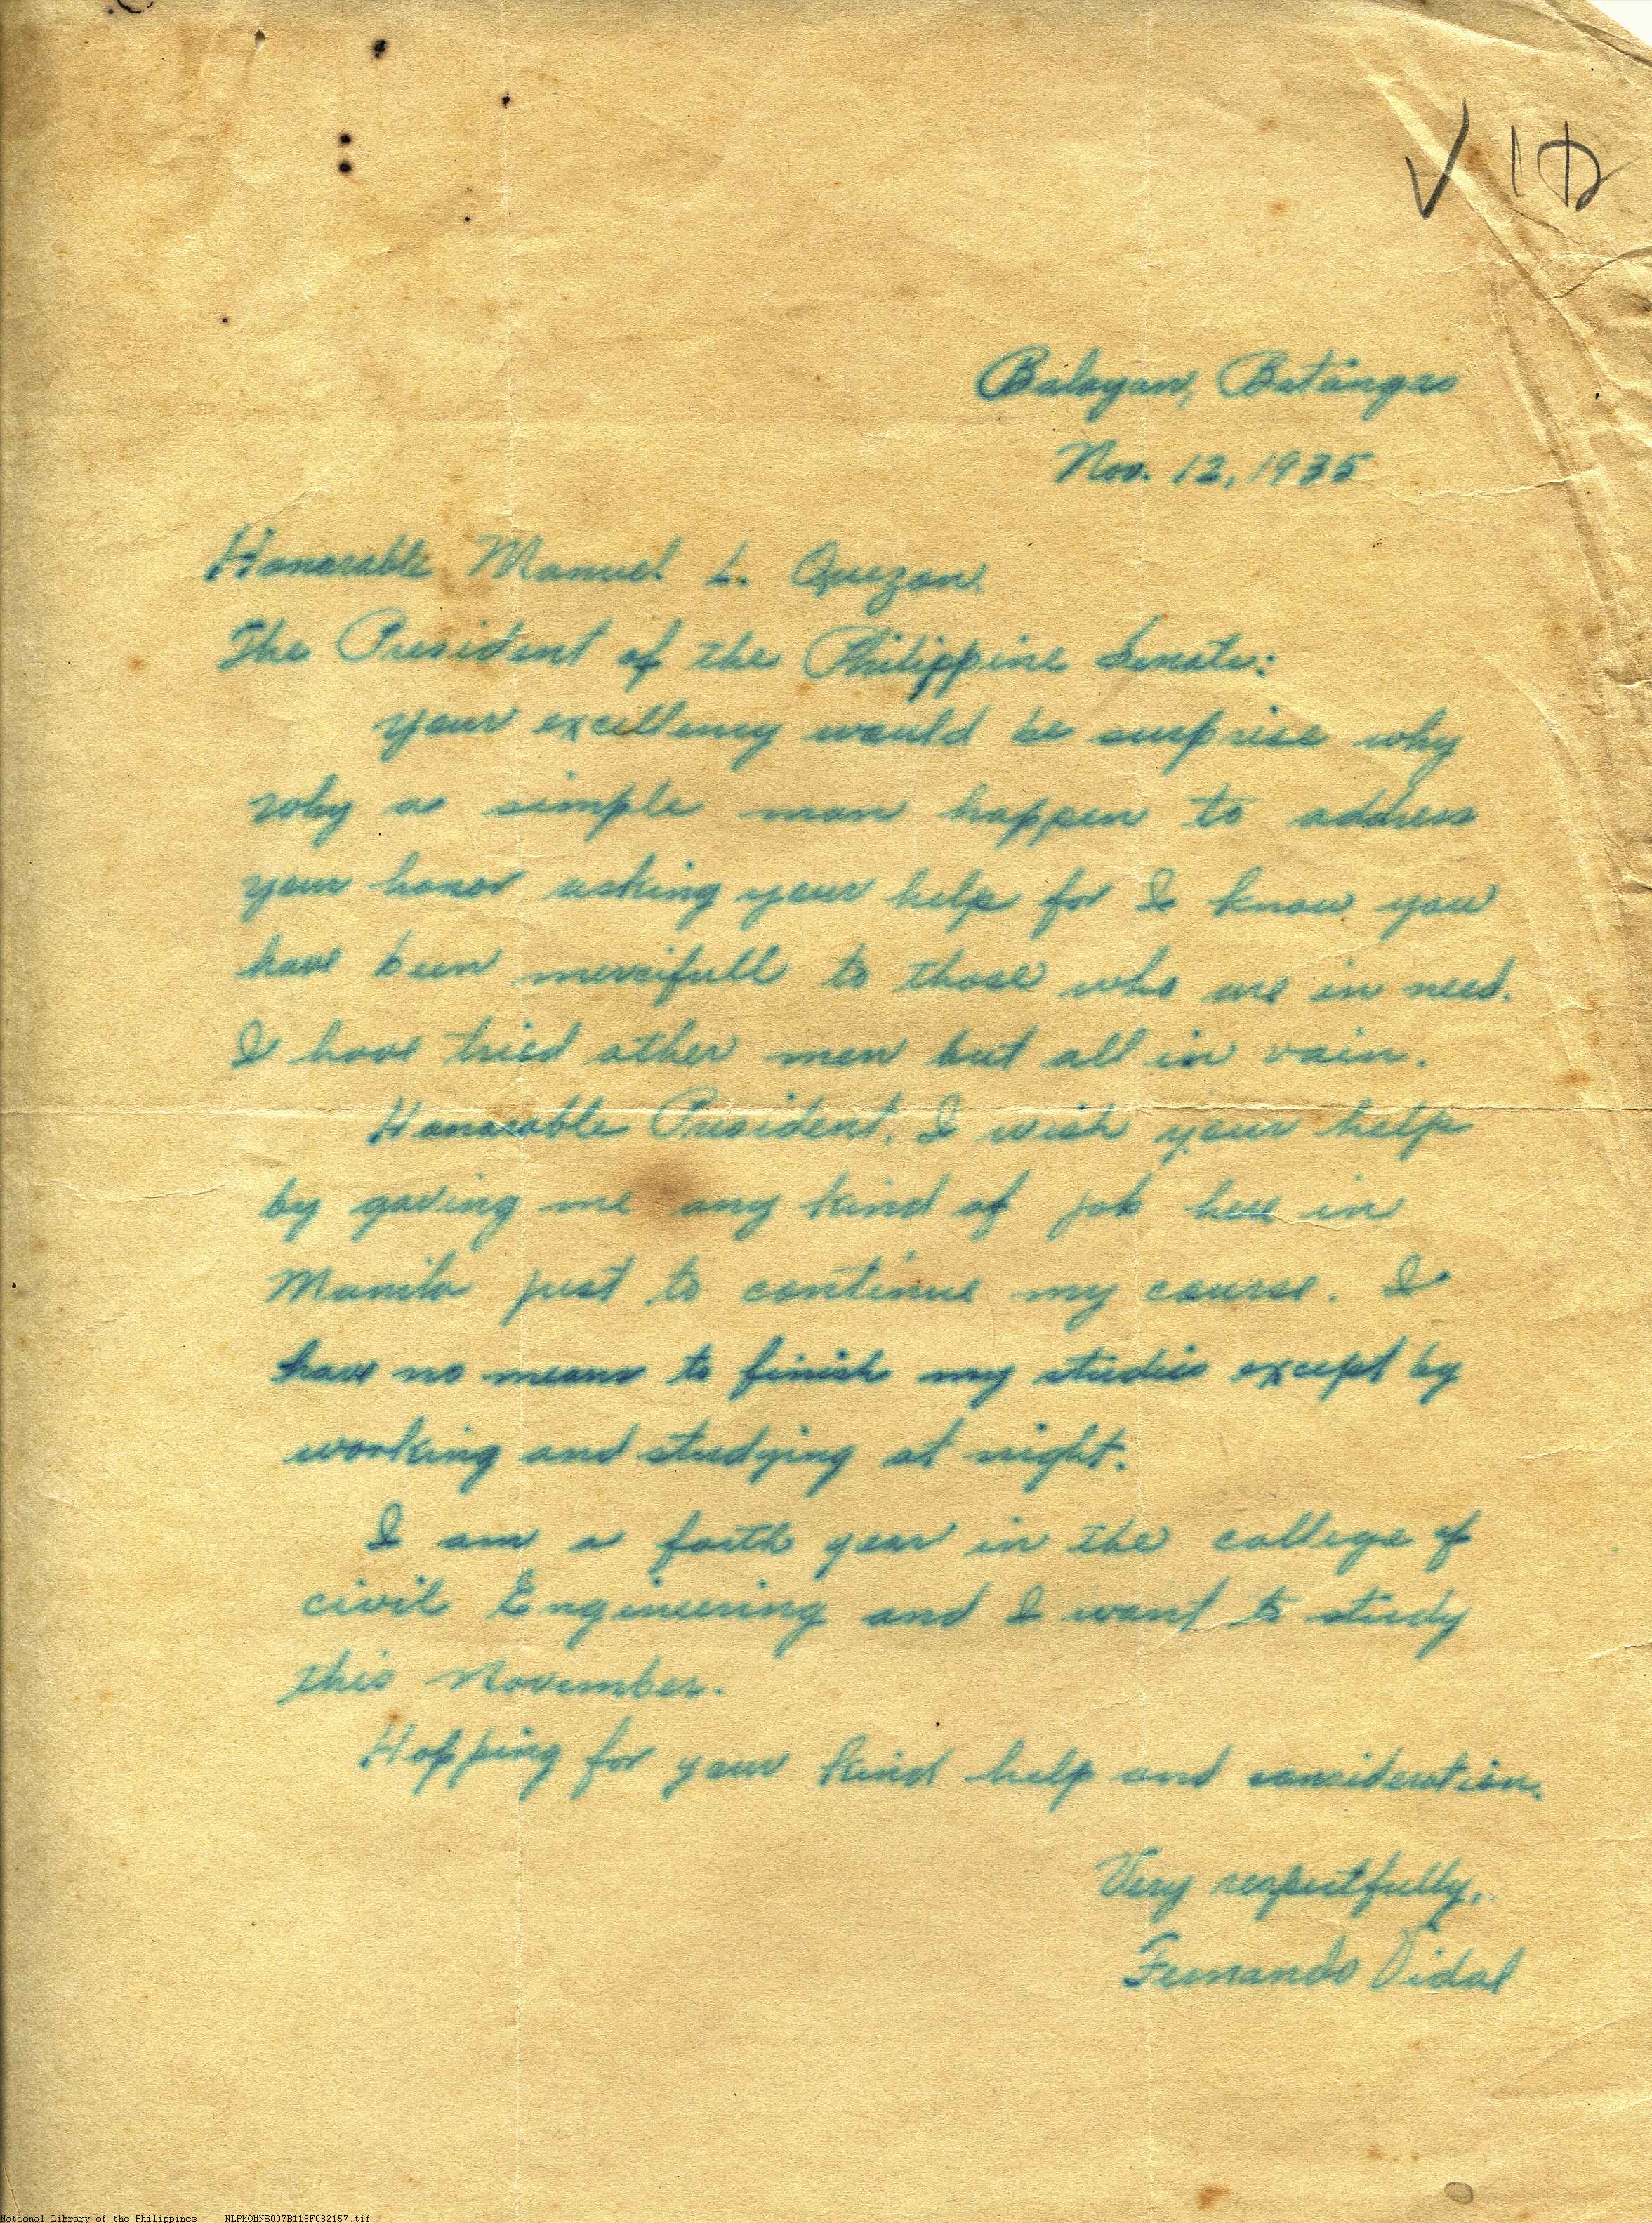 Balayan, Batangas
Nov. 12, 1935
Honorable Manuel L. Quezon,
The President of the Philippine Senate:
your excellency would be surprise why
why a simple man happen to address
your honor asking your help for I know you
have been mercifull to those who are in need.
I have tried other men but all in vain.
Honorable President, I wish your help
by gaving me any kind of job here in
Manila just to continue my course. I
have no means to finish my studies except by
working and studying at night.
I am a forth year in the college of
civil Engineering and I want to study
this November.
Hopping for your kind help and consideration.
Very respectfully,
Fernando Vidal
National Library of the Philippines NLPMQMNS007B118F082157.tif